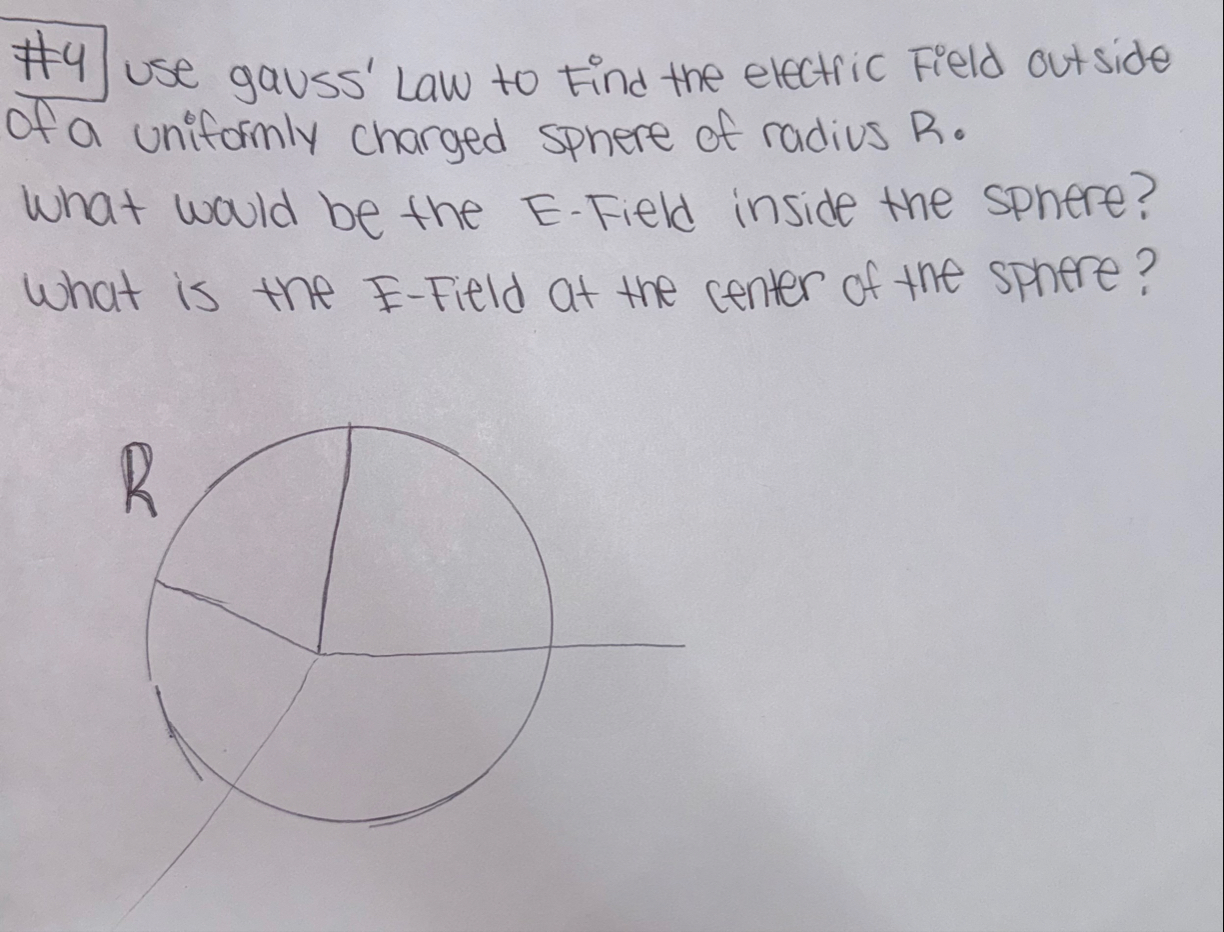 #4 use gauss' Law to find the electric Field outside
of a uniformly charged sphere of radius R.
What would be the E-Field inside the sphere?
What is the E-Field at the center of the sphere?
R